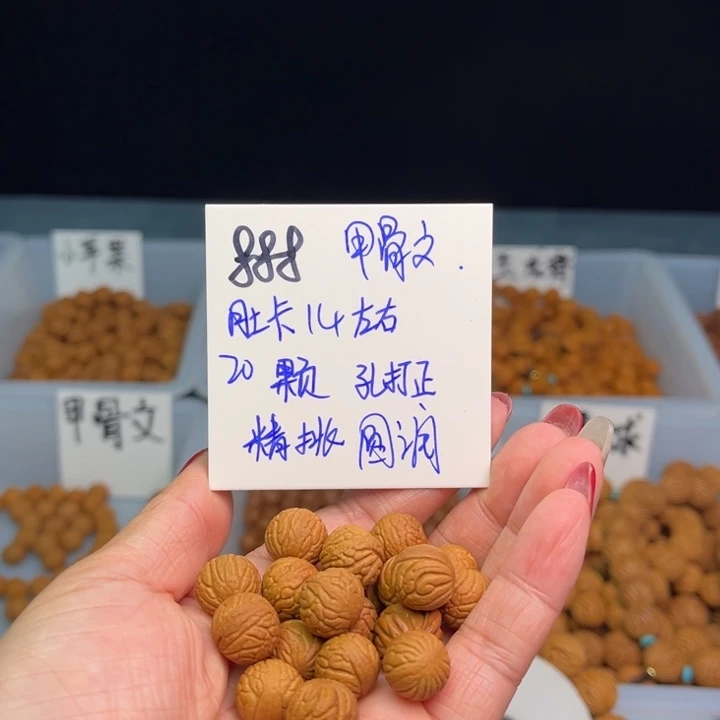 888 甲骨文.
肚卡14左右
20 颗 孔打正
精挑 圆润
小苹果
甲骨文
球